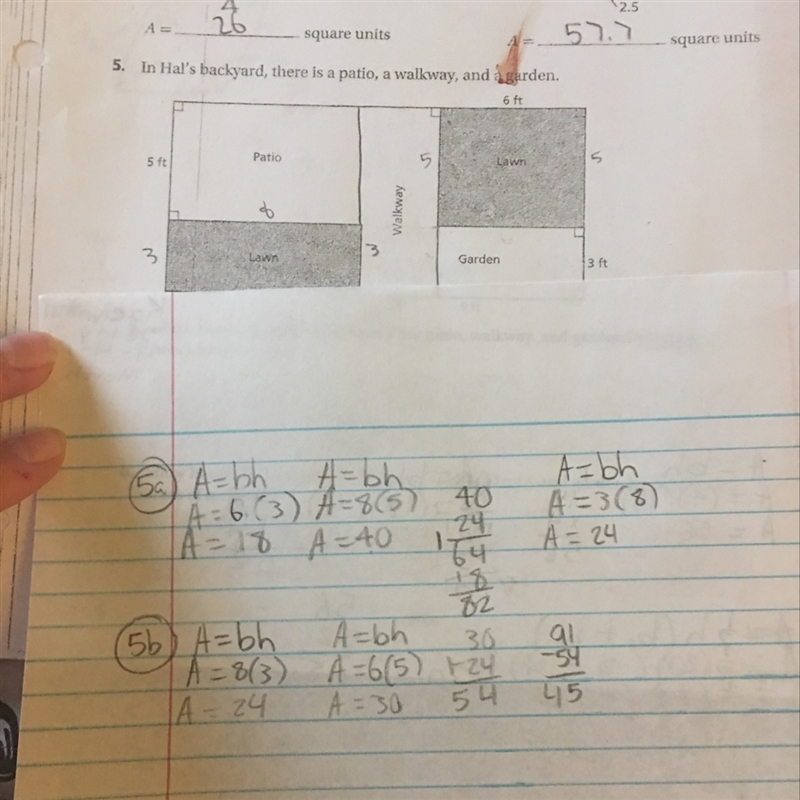 4
2.5
A = 26 square units
A = 57.7 square units
5. In Hal's backyard, there is a patio, a walkway, and a garden.
6 ft
5 ft
Patio
5
Lawn
5
8
Walkway
3
Lawn
3
Garden
3 ft
5a A=bh A=bh A=bh
A=6.(3) A=8(5) 40 A=3(8)
A=18 A=40 24 A=24
1 64
18
82
5b A=bh A=bh 30 91
A=8(3) A=6(5) +24 -54
A=24 A=30 54 45